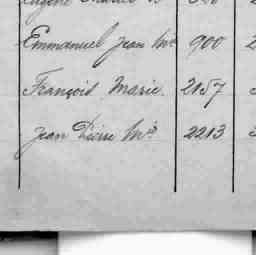 Emmanuel Jean Mie 900
François Marie 2157
Jean Pierre Mie 2213